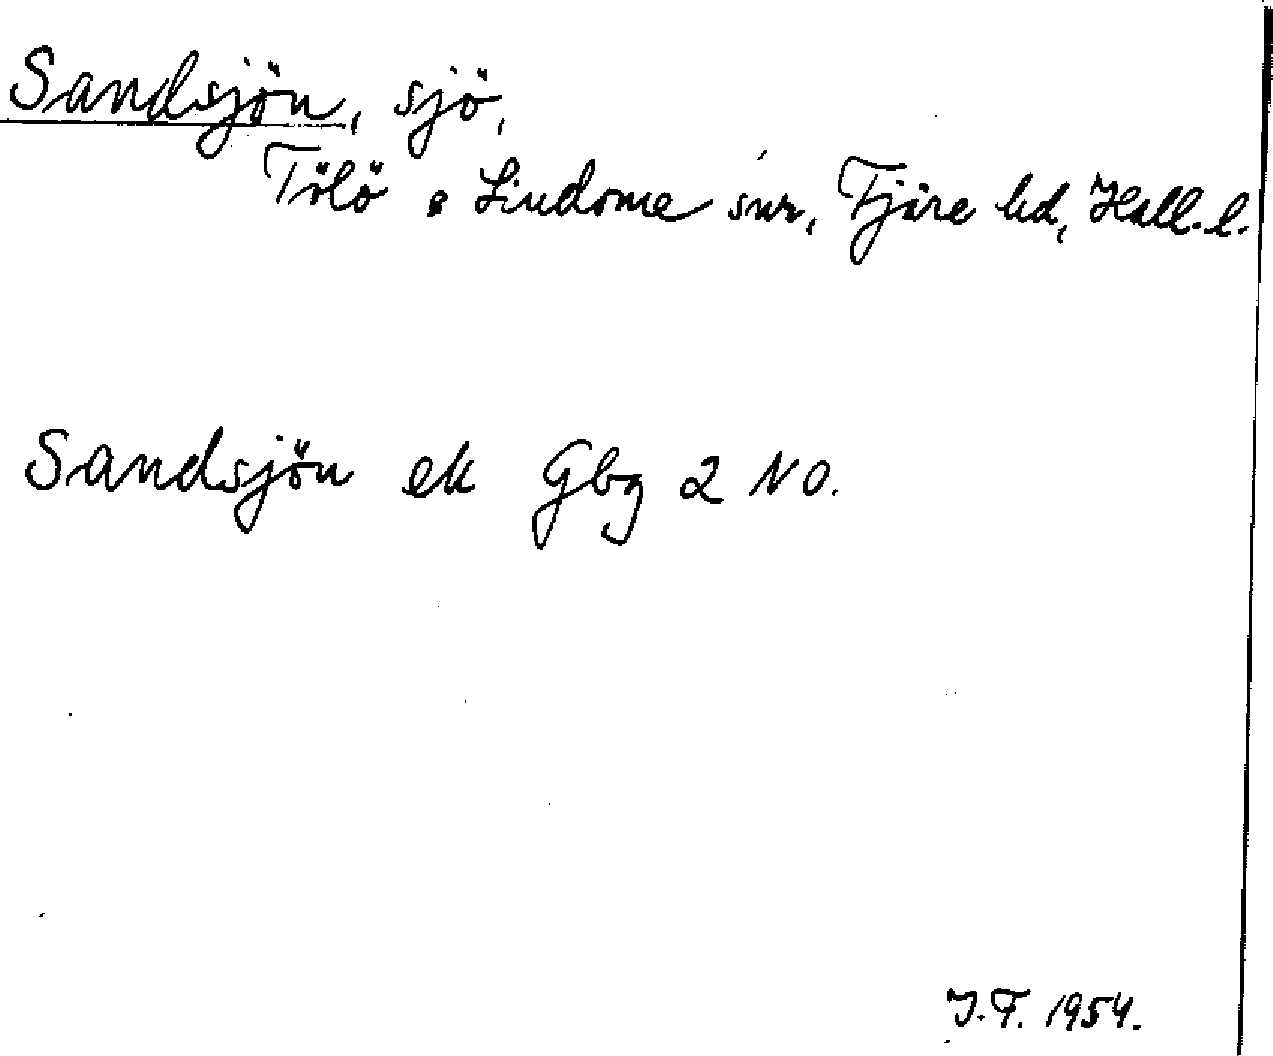 Sandsjön, sjö,
Tölö o Lindome snr, Fjäre hd, Hall. l.
Sandsjön ek Gbg 2 NO.
J.F. 1954.